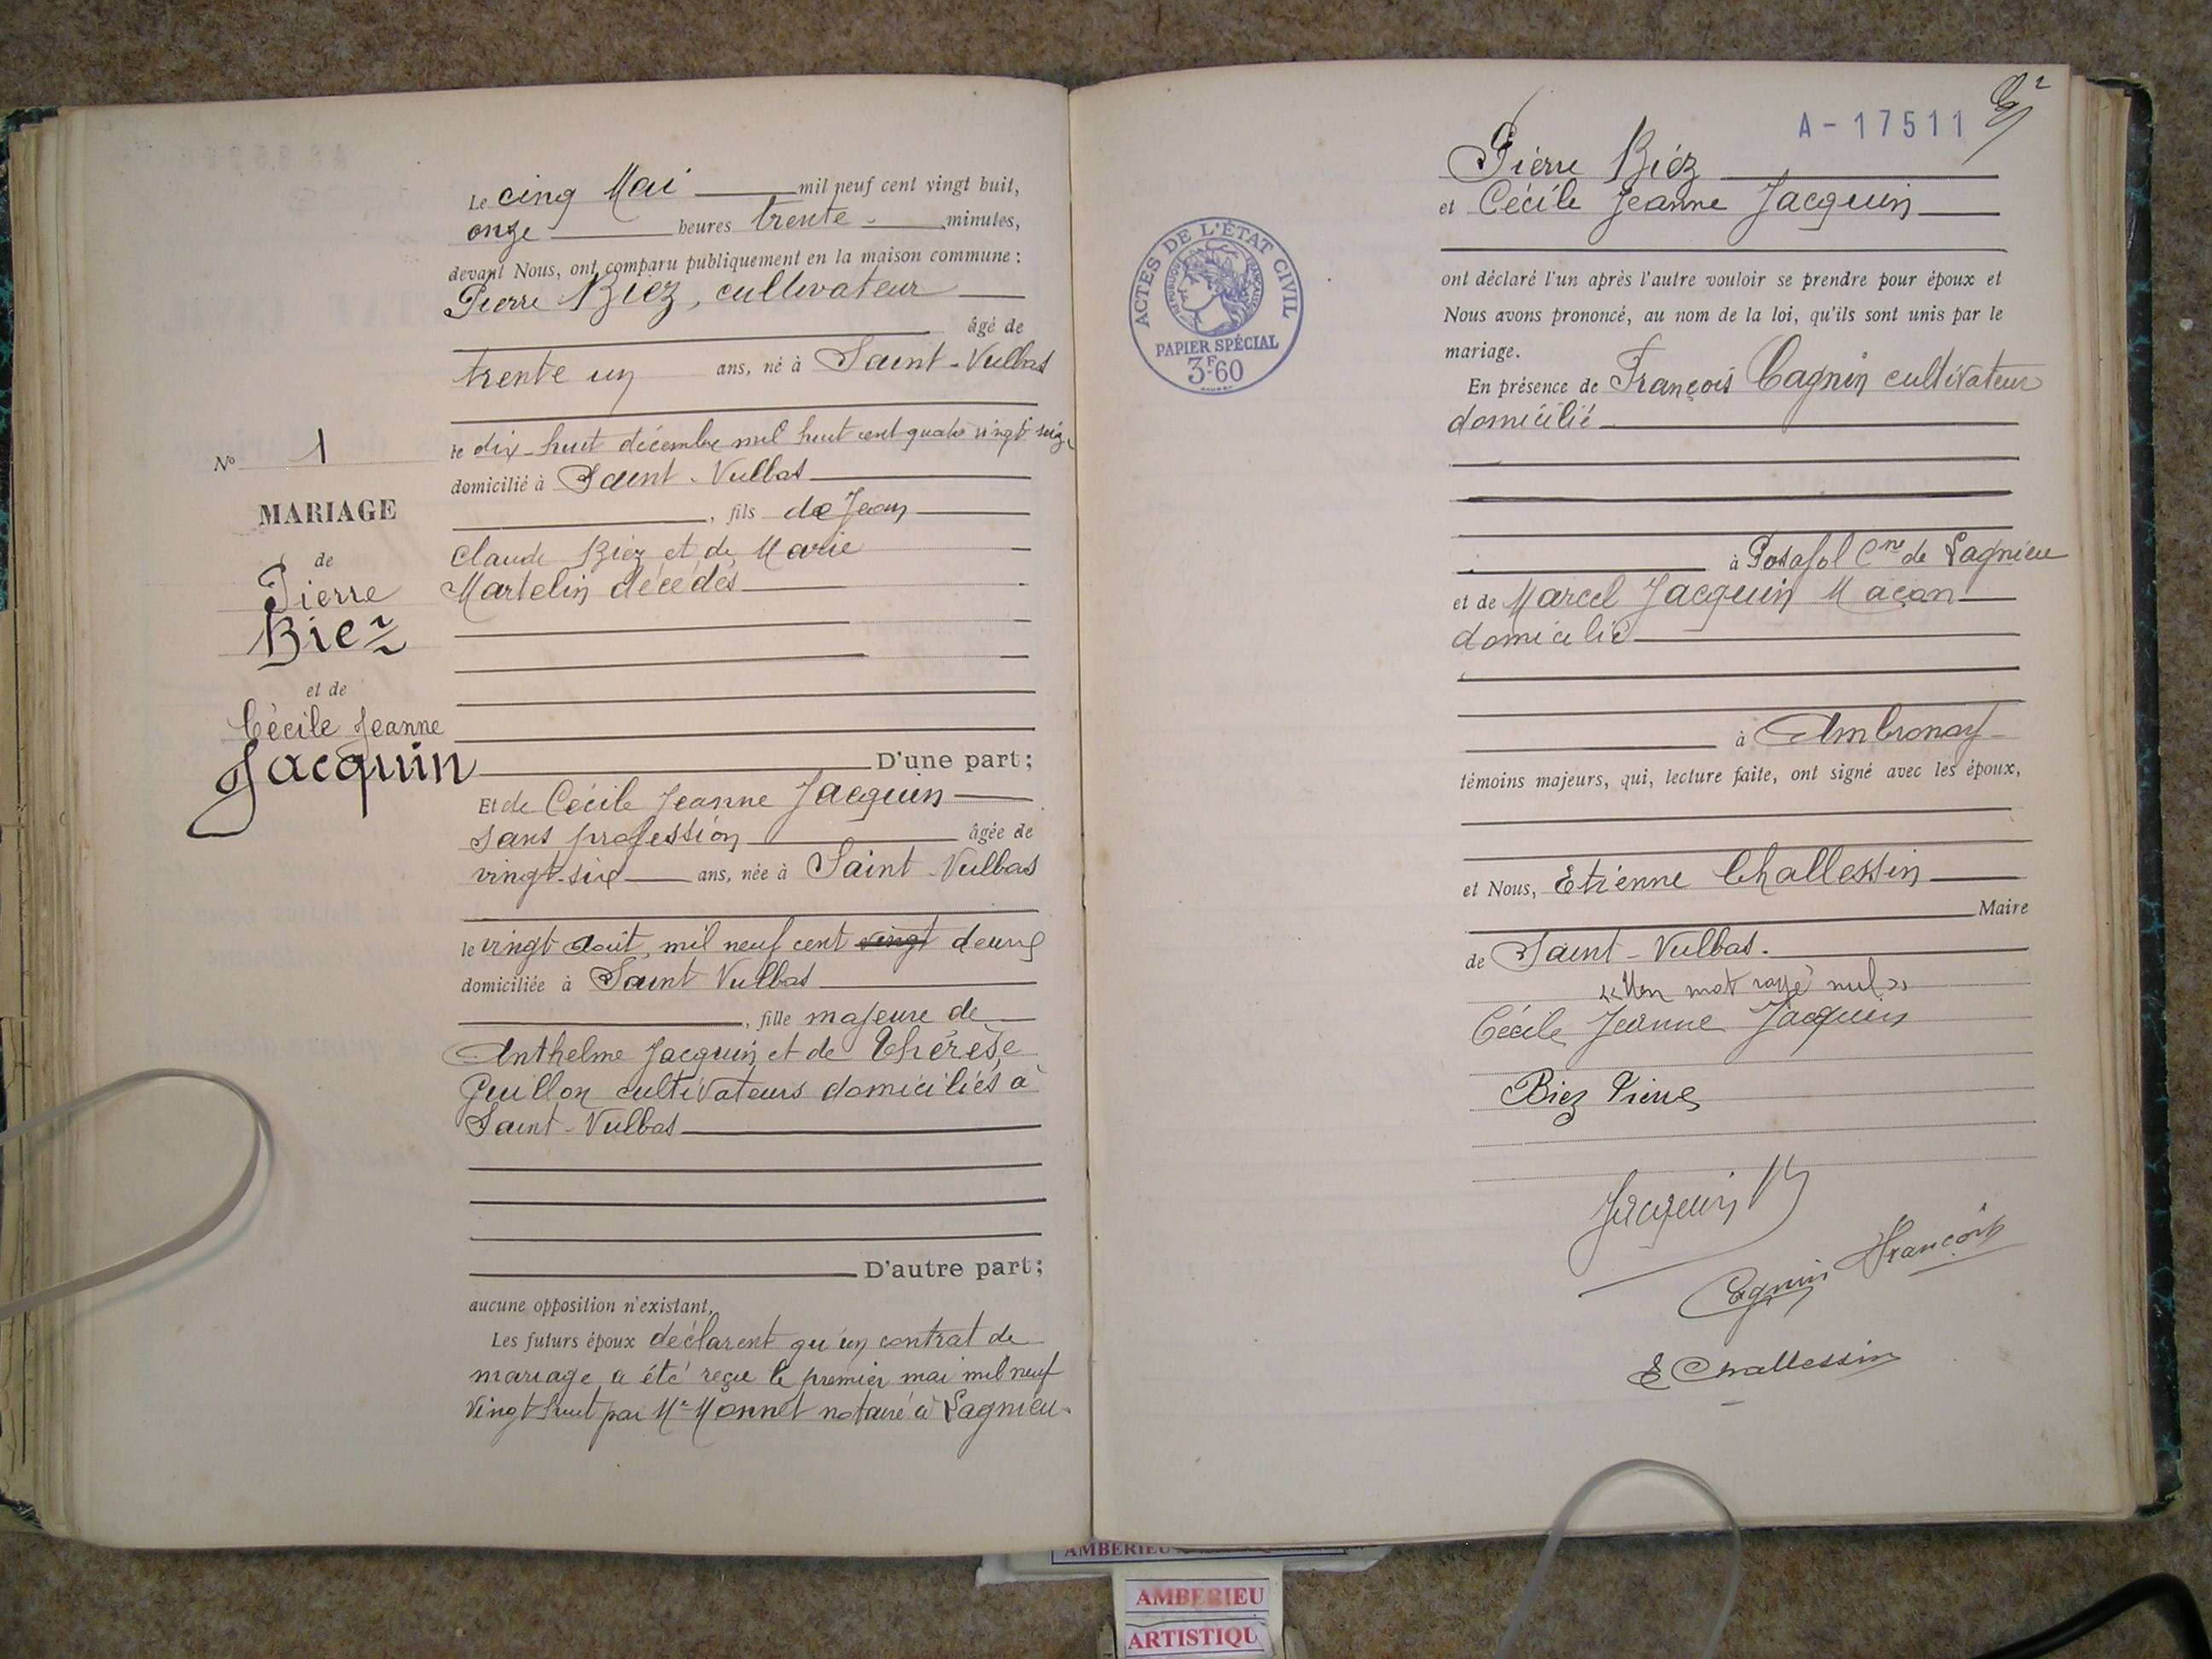 Le cinq Mai mil neuf cent vingt huit,
onze heures trente minutes,
devant Nous, ont comparu publiquement en la maison commune :
Pierre Biéz, cultivateur
âgé de
trente un ans, né à Saint-Vulbas
le dix-huit décembre mil huit cent quatre vingt seize
domicilié à Saint-Vulbas
, fils de Jean
Claude Biéz et de Marie
Martelin décédés
D'une part;
No 1
MARIAGE
de
Pierre
Biez
et de
Cécile Jeanne
Jacquin
Et de Cécile Jeanne Jacquin
sans profession âgée de
vingt-six ans, née à Saint-Vulbas
le vingt août, mil neuf cent vingt deux
domiciliée à Saint Vulbas
, fille majeure de
Anthelme Jacquin et de Thérèse
Quillon cultivateurs domiciliés à
Saint-Vulbas
D'autre part;
aucune opposition n'existant,
Les futurs époux déclarent qu'un contrat de
mariage a été reçu le premier mai mil neuf
vingt huit par Me Monnet notaire à Lagnieu.
A-17511
Pierre Biéz
et Cécile Jeanne Jacquin
ACTES DE L'ÉTAT CIVIL
RÉPUBLIQUE FRANÇAISE
PAPIER SPÉCIAL
3F60
ont déclaré l'un après l'autre vouloir se prendre pour époux et
Nous avons prononcé, au nom de la loi, qu'ils sont unis par le
mariage.
En présence de François Cagnin cultivateur
domicilié
à Posafol Cne de Lagnieu
et de Marcel Jacquin Maçon
domicilié
à Ambronay
témoins majeurs, qui, lecture faite, ont signé avec les époux,
et Nous, Etienne Challessin
Maire
de Saint-Vulbas.
« Un mot rayé nul »
Cécile Jeanne Jacquin
Biez Pierre
Jacquin M
Cagnin François
E Challessin
AMBERIEU
AMBERIEU
ARTISTIQU